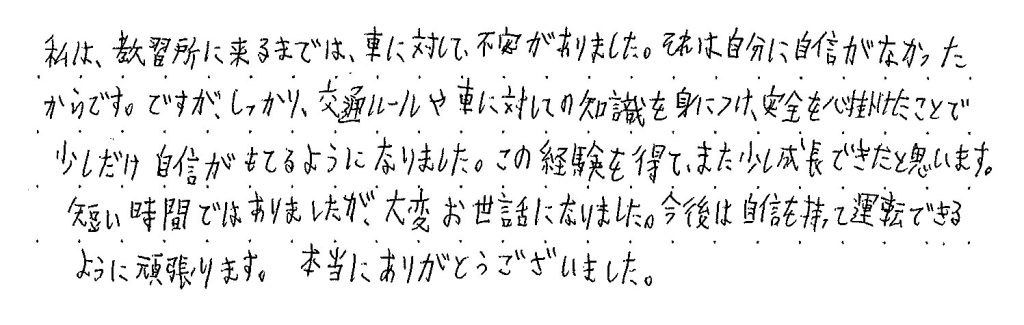 私は、教習所に来るまでは、車に対して、不安がありました。それは自分に自信がなかった
からです。ですが、しっかり、交通ルールや車に対しての知識を身につけ、安全を心掛けたことで
少しだけ自信がもてるようになりました。この経験を得て、また少し成長できたと思います。
短い時間ではありましたが、大変お世話になりました。今後は自信を持って運転できる
ように頑張ります。 本当にありがとうございました。